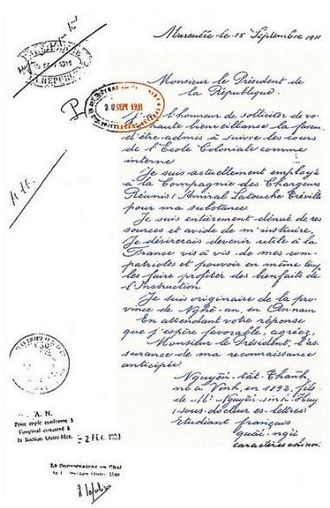 Marseille le 15 Septembre 1911
Monsieur le Président de
la République.
J'ai l'honneur de solliciter de vo-
tre haute bienveillance la faveur
d'être admis à suivre les cours
de l'Ecole Coloniale comme
interne
Je suis actuellement employé
à la Compagnie des Chargeurs
Réunis (Amiral Latouche Tréville
pour ma subsistance
Je suis entièrement dénué de res
sources et avide de m'instruire.
Je désirerais devenir utile à la
France vis à vis de mes com-
patriotes et pouvoir en même temps
les faire profiter des bienfaits de
l'Instruction
Je suis originaire de la pro-
vince de Nghê-an, en Annam
En attendant votre réponse
que j'espère favorable, agréez,
Monsieur le Président, l'as
surance de ma reconnaissance
anticipée
Nguyễn-tât-Thanh,
né à Vinh, en 1892, fils
de Mr Nguyễn-sinh-Huy
(sous-docteur ès-lettres)
Etudiant français
quốc-ngữ
caractères chinois
20 SEPT 1911
A. N.
Pour copie conforme à
l'original conservé à
la Section Outre-Mer.